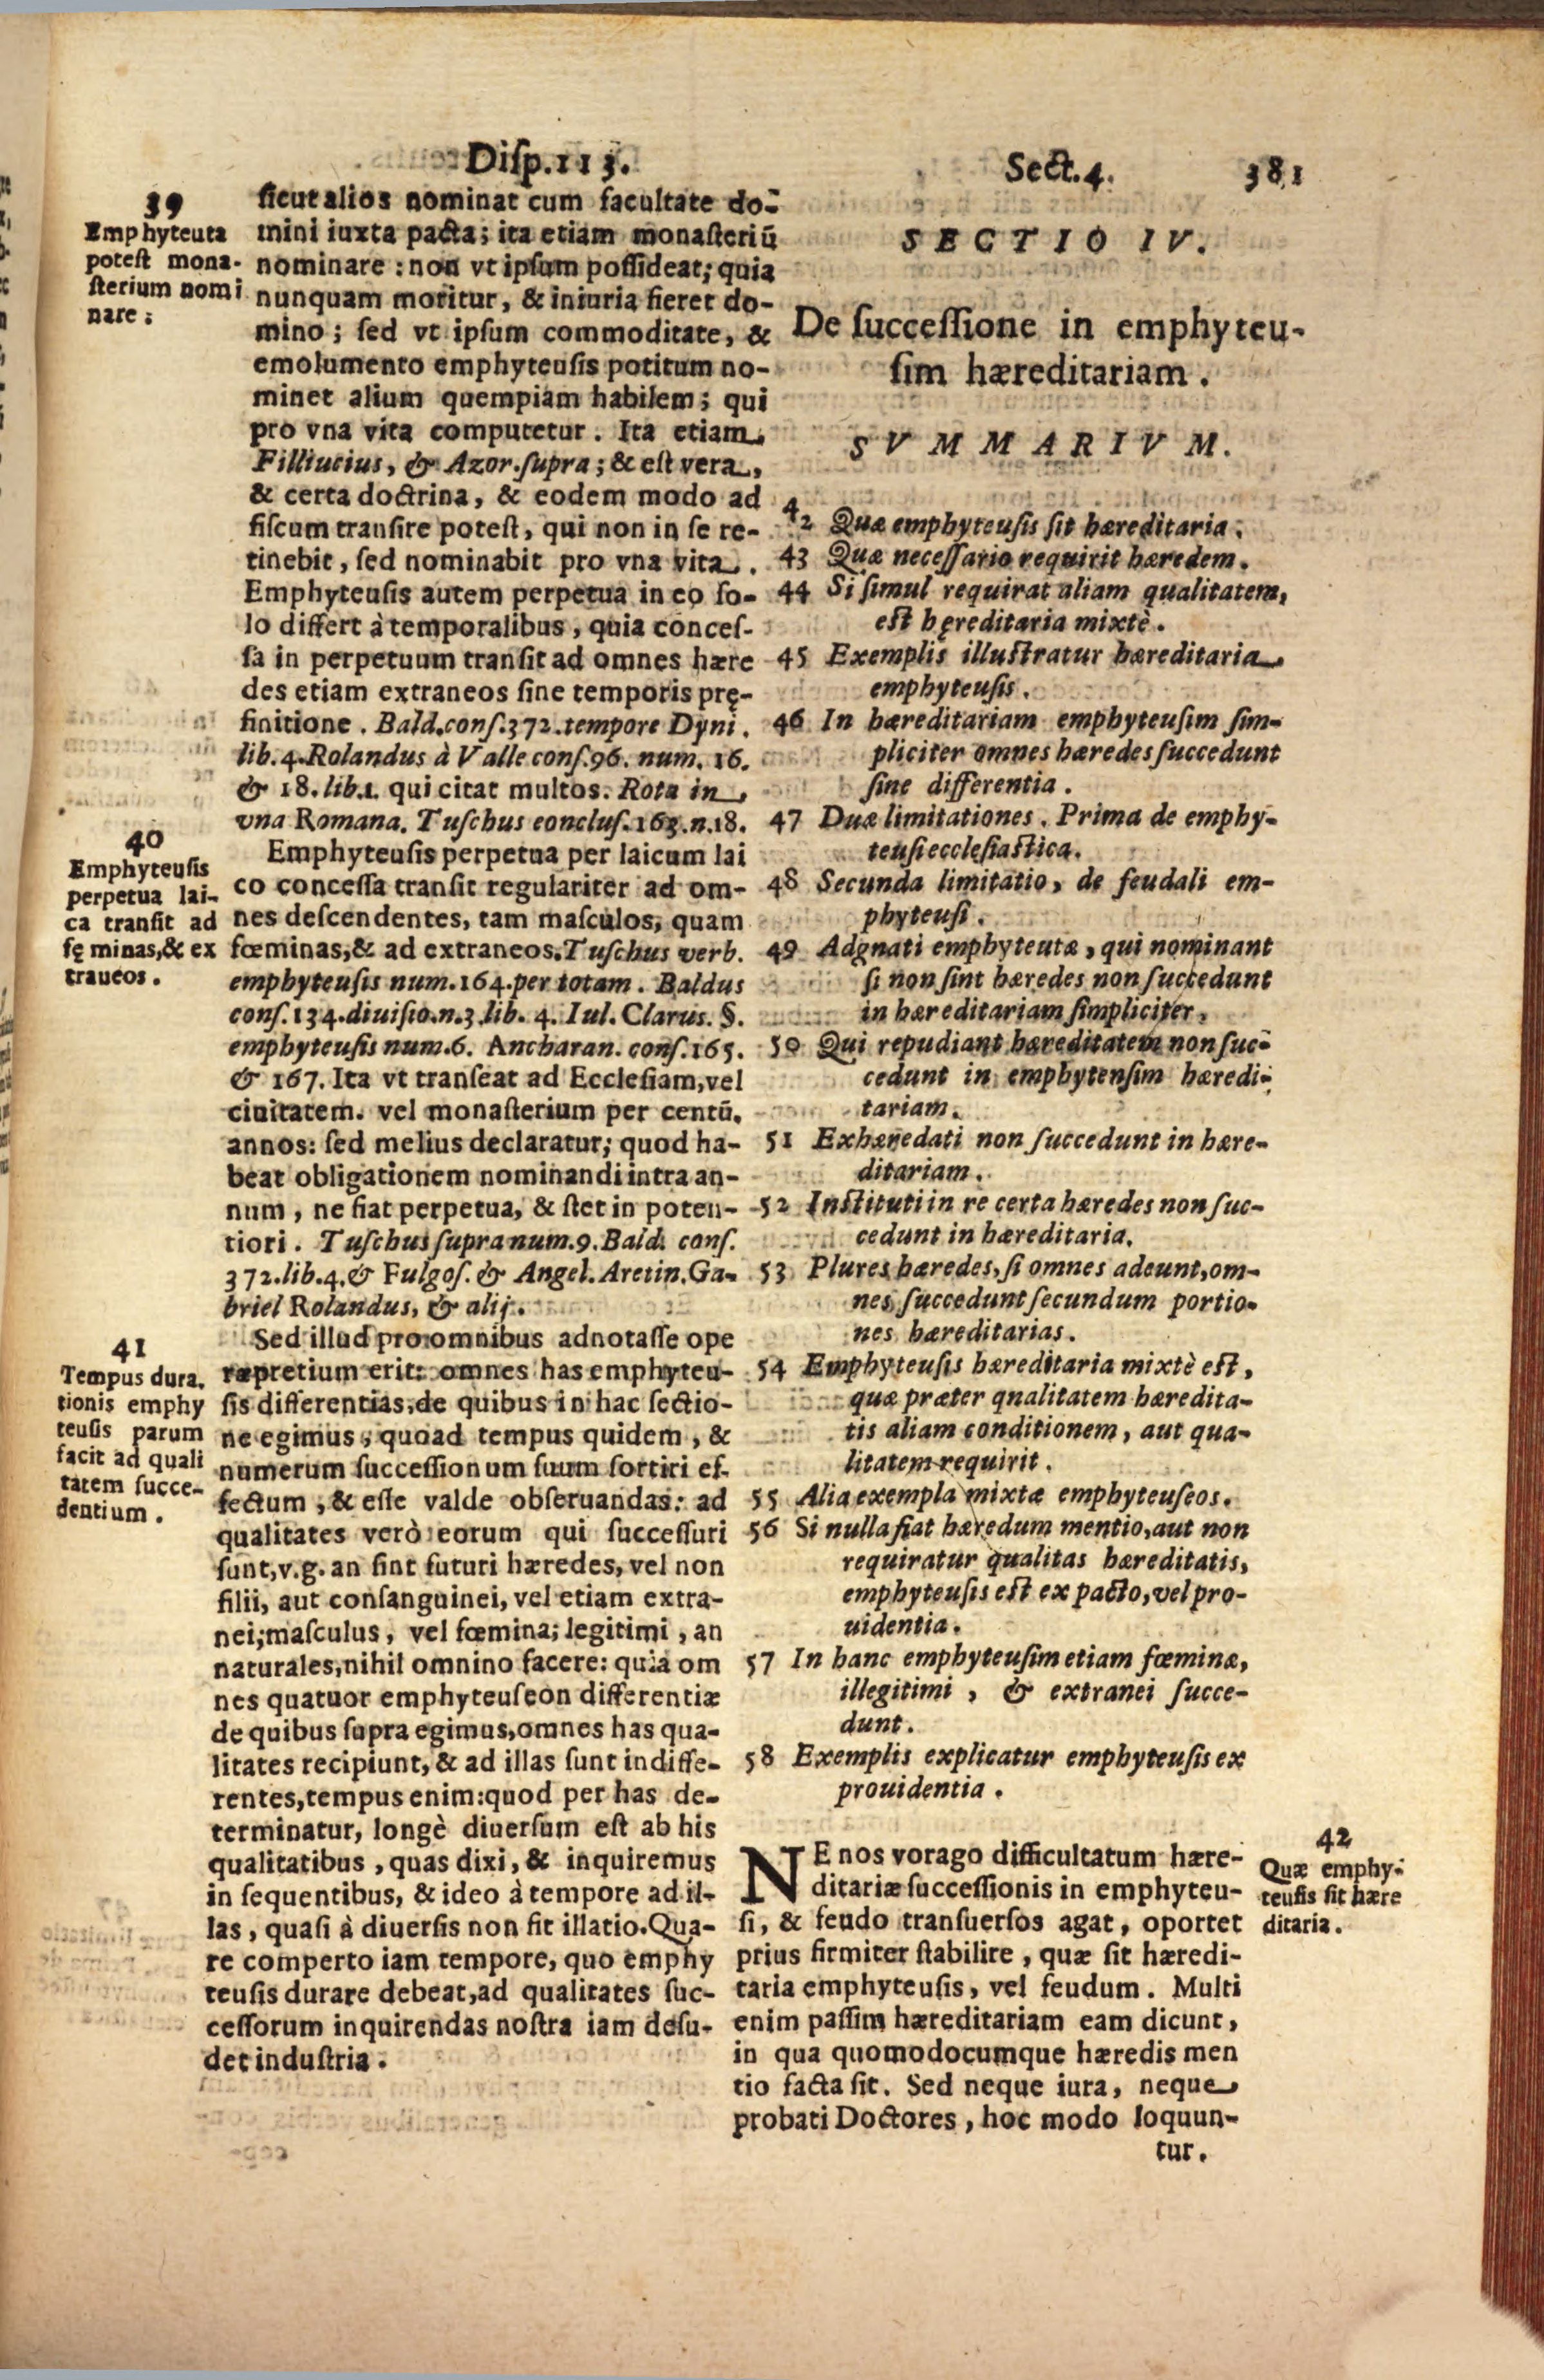 Diſp.113.
Sect.4.
381
39
Emphyteuta
poteſt mona-
ſterium nomi
nare.
ſicut alios nominat cum facultate do-
mini iuxta pacta; ita etiam monaſteriũ
nominare: non vt ipſum poſſideat; quia
nunquam moritur, & iniuria fieret do-
mino; ſed vt ipſum commoditate, &
emolumento emphyteuſis potitum no-
minet alium quempiam habilem; qui
pro vna vita computetur. Ita etiam
Filliucius, & Azor.ſupra; & eſt vera,
& certa doctrina, & eodem modo ad
fiſcum tranſire poteſt, qui non in ſe re-
tinebit, ſed nominabit pro vna vita.
Emphyteuſis autem perpetua in eo ſo-
lo differt à temporalibus, quia conceſ-
ſa in perpetuum tranſit ad omnes hære
des etiam extraneos ſine temporis prę-
finitione. Bald.conſ.372.tempore Dyni.
lib.4.Rolandus à Valle conſ.96. num. 16.
& 18.lib.1. qui citat multos. Rota in
vna Romana. Tuſchus concluſ.163.n.18.
40
Emphyteuſis
perpetua lai-
ca tranſit ad
fęminas,& ex
traueos.
Emphyteuſis perpetua per laicum lai
co conceſſa tranſit regulariter ad om-
nes deſcendentes, tam maſculos, quam
fœminas,& ad extraneos.Tuſchus verb.
emphyteuſis num.164.per totam. Baldus
conſ.134.diuiſio.n.3.lib. 4. Iul. Clarus. §.
emphyteuſis num.6. Ancharan. conſ.165.
& 167. Ita vt tranſeat ad Eccleſiam,vel
ciuitatem. vel monaſterium per centũ.
annos: ſed melius declaratur; quod ha-
beat obligationem nominandi intra an-
num, ne fiat perpetua, & ſtet in poten-
tiori. Tuſchus ſupra num.9.Bald. conſ.
372.lib.4.& Fulgoſ. & Angel.Aretin.Ga-
briel Rolandus, & alij.
41
Tempus dura.
tionis emphy
teuſis parum
facit ad quali
tatem ſucce-
dentium.
Sed illud pro omnibus adnotaſſe ope
ræpretium erit: omnes has emphyteu-
ſis differentias,de quibus in hac ſectio-
ne egimus, quoad tempus quidem, &
numerum ſucceſſionum ſuum ſortiri ef-
fectum, & eſſe valde obſeruandas: ad
qualitates verò eorum qui ſucceſſuri
ſunt,v.g. an ſint futuri hæredes, vel non
filii, aut conſanguinei, vel etiam extra-
nei;maſculus, vel fœmina; legitimi, an
naturales,nihil omnino facere: quia om
nes quatuor emphyteuſeon differentiæ
de quibus ſupra egimus,omnes has qua-
litates recipiunt,& ad illas ſunt indiffe-
rentes,tempus enim:quod per has de-
terminatur, longè diuerſum eſt ab his
qualitatibus, quas dixi, & inquiremus
in ſequentibus, & ideo à tempore ad il-
las, quaſi à diuerſis non fit illatio.Qua-
re comperto iam tempore, quo emphy
teuſis durare debeat,ad qualitates ſuc-
ceſſorum inquirendas noſtra iam deſu-
det induſtria.
SECTIO IV.
De ſucceſſione in emphyteu-
ſim hæreditariam.
SVMMARIVM.
42 Quæ emphyteuſis ſit hæreditaria.
43 Quæ neceſſario requirit hæredem.
44 Si ſimul requirat aliam qualitatem,
eſt hęreditaria mixtè.
45 Exemplis illuſtratur hæreditaria
emphyteuſis.
46 In hæreditariam emphyteuſim ſim-
pliciter omnes hæredes ſuccedunt
ſine differentia.
47 Duæ limitationes. Prima de emphy-
teuſi eccleſiaſtica.
48 Secunda limitatio, de feudali em-
phyteuſi.
49 Adgnati emphyteutæ, qui nominant
ſi non ſint hæredes non ſuccedunt
in hæreditariam ſimpliciter.
50 Qui repudiant hæreditatem non ſuc-
cedunt in emphytenſim hæredi-
tariam.
51 Exhæredati non ſuccedunt in hære-
ditariam.
52 Inſtituti in re certa hæredes non ſuc-
cedunt in hæreditaria.
53 Plures hæredes, ſi omnes adeunt,om-
nes ſuccedunt ſecundum portio-
nes hæreditarias.
54 Emphyteuſis hæreditaria mixtè eſt,
quæ præter qnalitatem hæredita-
tis aliam conditionem, aut qua-
litatem requirit.
55 Alia exempla mixtæ emphyteuſeos.
56 Si nulla fiat hæredum mentio,aut non
requiratur qualitas hæreditatis,
emphyteuſis eſt ex pacto,vel pro-
uidentia.
57 In hanc emphyteuſim etiam fœminæ,
illegitimi, & extranei ſucce-
dunt.
58 Exemplis explicatur emphyteuſis ex
prouidentia.
42
Quæ emphy-
teuſis ſit hære
ditaria.
NE nos vorago difficultatum hære-
ditariæ ſucceſſionis in emphyteu-
ſi, & feudo tranſuerſos agat, oportet
prius firmiter ſtabilire, quæ ſit hæredi-
taria emphyteuſis, vel feudum. Multi
enim paſſim hæreditariam eam dicunt,
in qua quomodocumque hæredis men
tio facta ſit. Sed neque iura, neque
probati Doctores, hoc modo loquun-
tur.